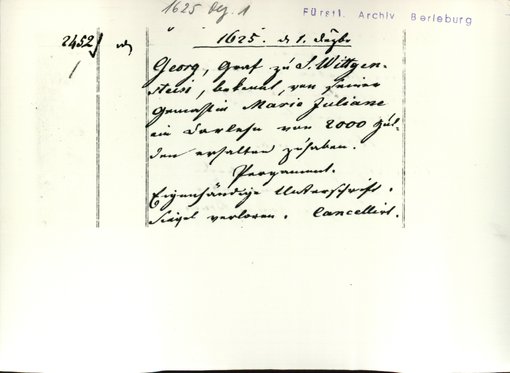 1625 Dez. 1
Fürstl. Archiv Berleburg
2452
1625. d 1. Dezbr
Georg, Graf zu S. Wittgen-
stein, bekennt, von seiner
Gemahlin Maria Juliane
ein Darlehn von 2000 Gül-
den erhalten zu haben.
Pergament.
Eigenhändige Unterschrift.
Siegel verloren. Cancellirt.